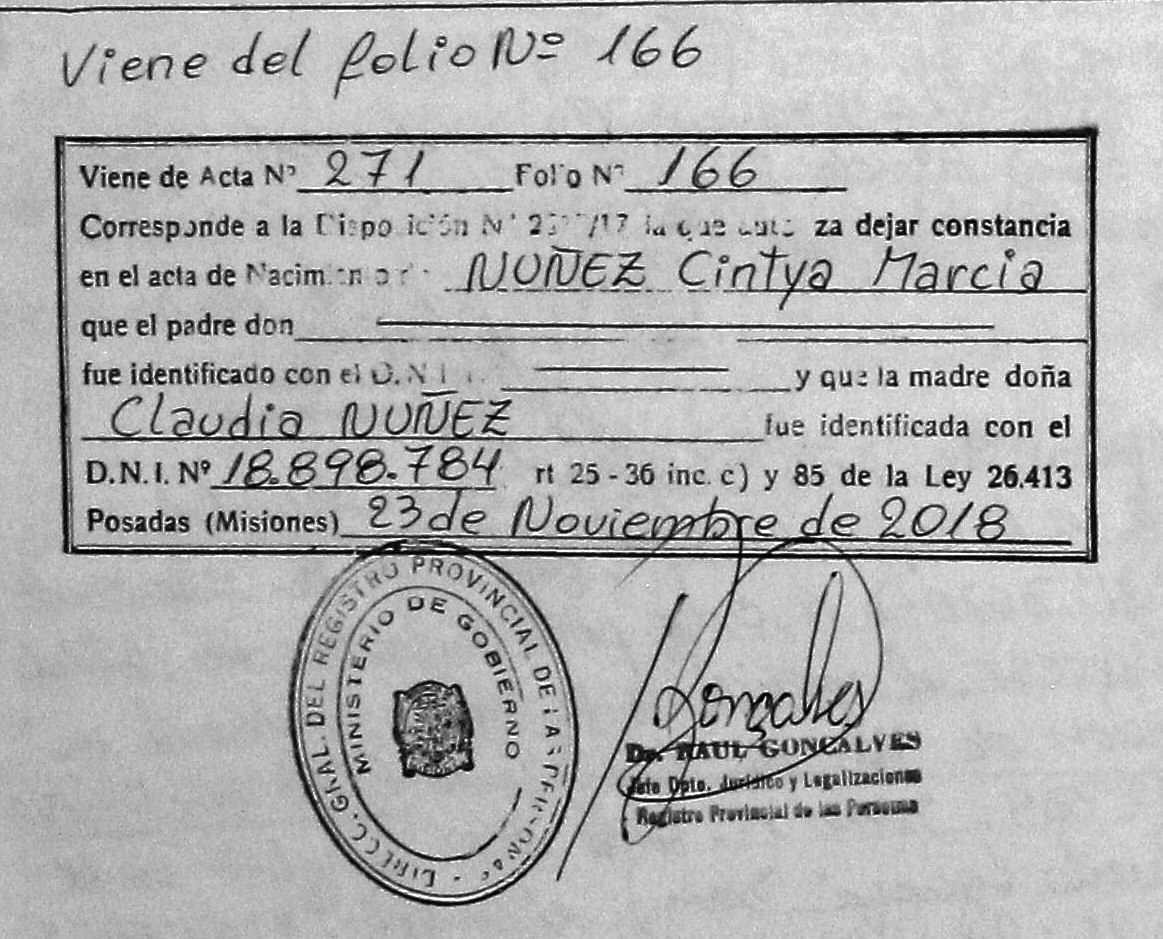 Viene del folio Nº 166
Viene de Acta Nº 271 Folio Nº 166
Corresponde a la Disposición Nº /17 la que autoriza dejar constancia
en el acta de Nacimiento de NUÑEZ Cintya Marcia
que el padre don
fue identificado con el D.N.I. y que la madre doña
Claudia NUÑEZ fue identificada con el
D.N.I. Nº 18.898.784 rt 25 - 36 inc. c) y 85 de la Ley 26.413
Posadas (Misiones) 23 de Noviembre de 2018
DIRECC. GRAL. DEL REGISTRO PROVINCIAL DE LAS PERSONAS
MINISTERIO DE GOBIERNO
Gonçalves
Dr. RAUL GONCALVES
Jefe Dpto. Jurídico y Legalizaciones
Registro Provincial de las Personas